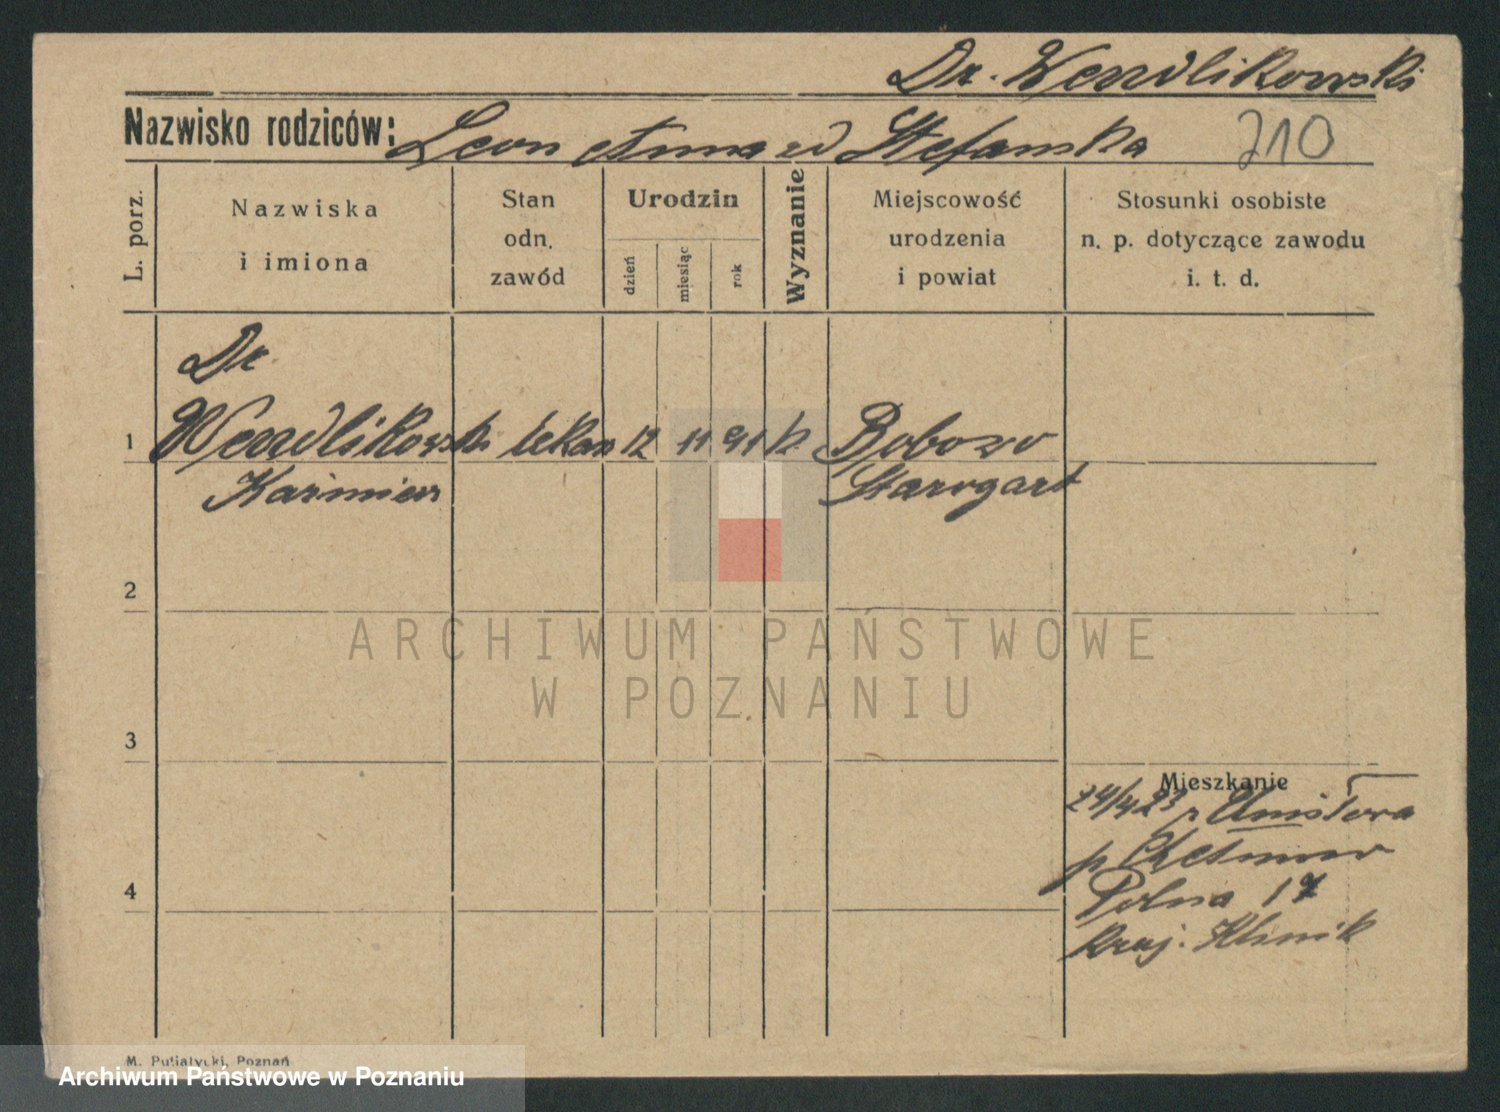 Dr. Wendlikowski
Nazwisko rodziców: Leon Anna zd Stefanska 210
L. porz.
Nazwiska
i imiona
Stan
odn.
zawód
Urodzin
dzień
miesiąc
rok
Wyznanie
Miejscowość
urodzenia
i powiat
Stosunki osobiste
n. p. dotyczące zawodu
i. t. d.
Dr
1 Wendlikowski lekarz 12 11 91 k Bobowo
Kazimierz Starogart
2
ARCHIWUM PAŃSTWOWE
W POZNANIU
3
Mieszkanie
24/4 23 z
p
Polna 17
Kraj. Klinik
4
M. Putiatycki, Poznań
Archiwum Państwowe w Poznaniu